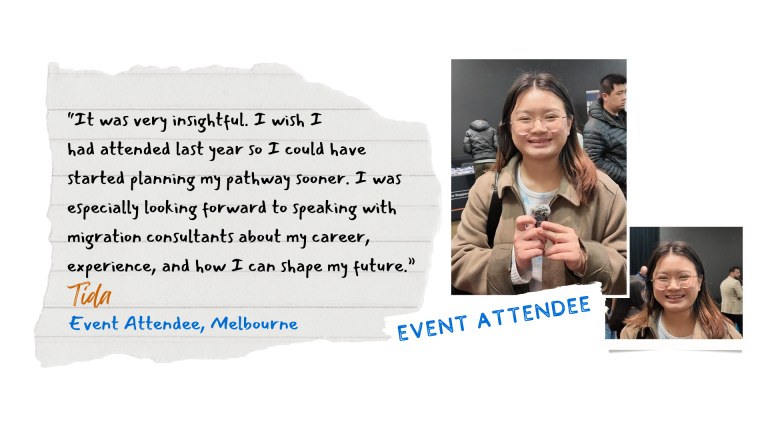 "It was very insightful. I wish I
had attended last year so I could have
started planning my pathway sooner. I was
especially looking forward to speaking with
migration consultants about my career,
experience, and how I can shape my future."
Tida
Event Attendee, Melbourne
EVENT ATTENDEE